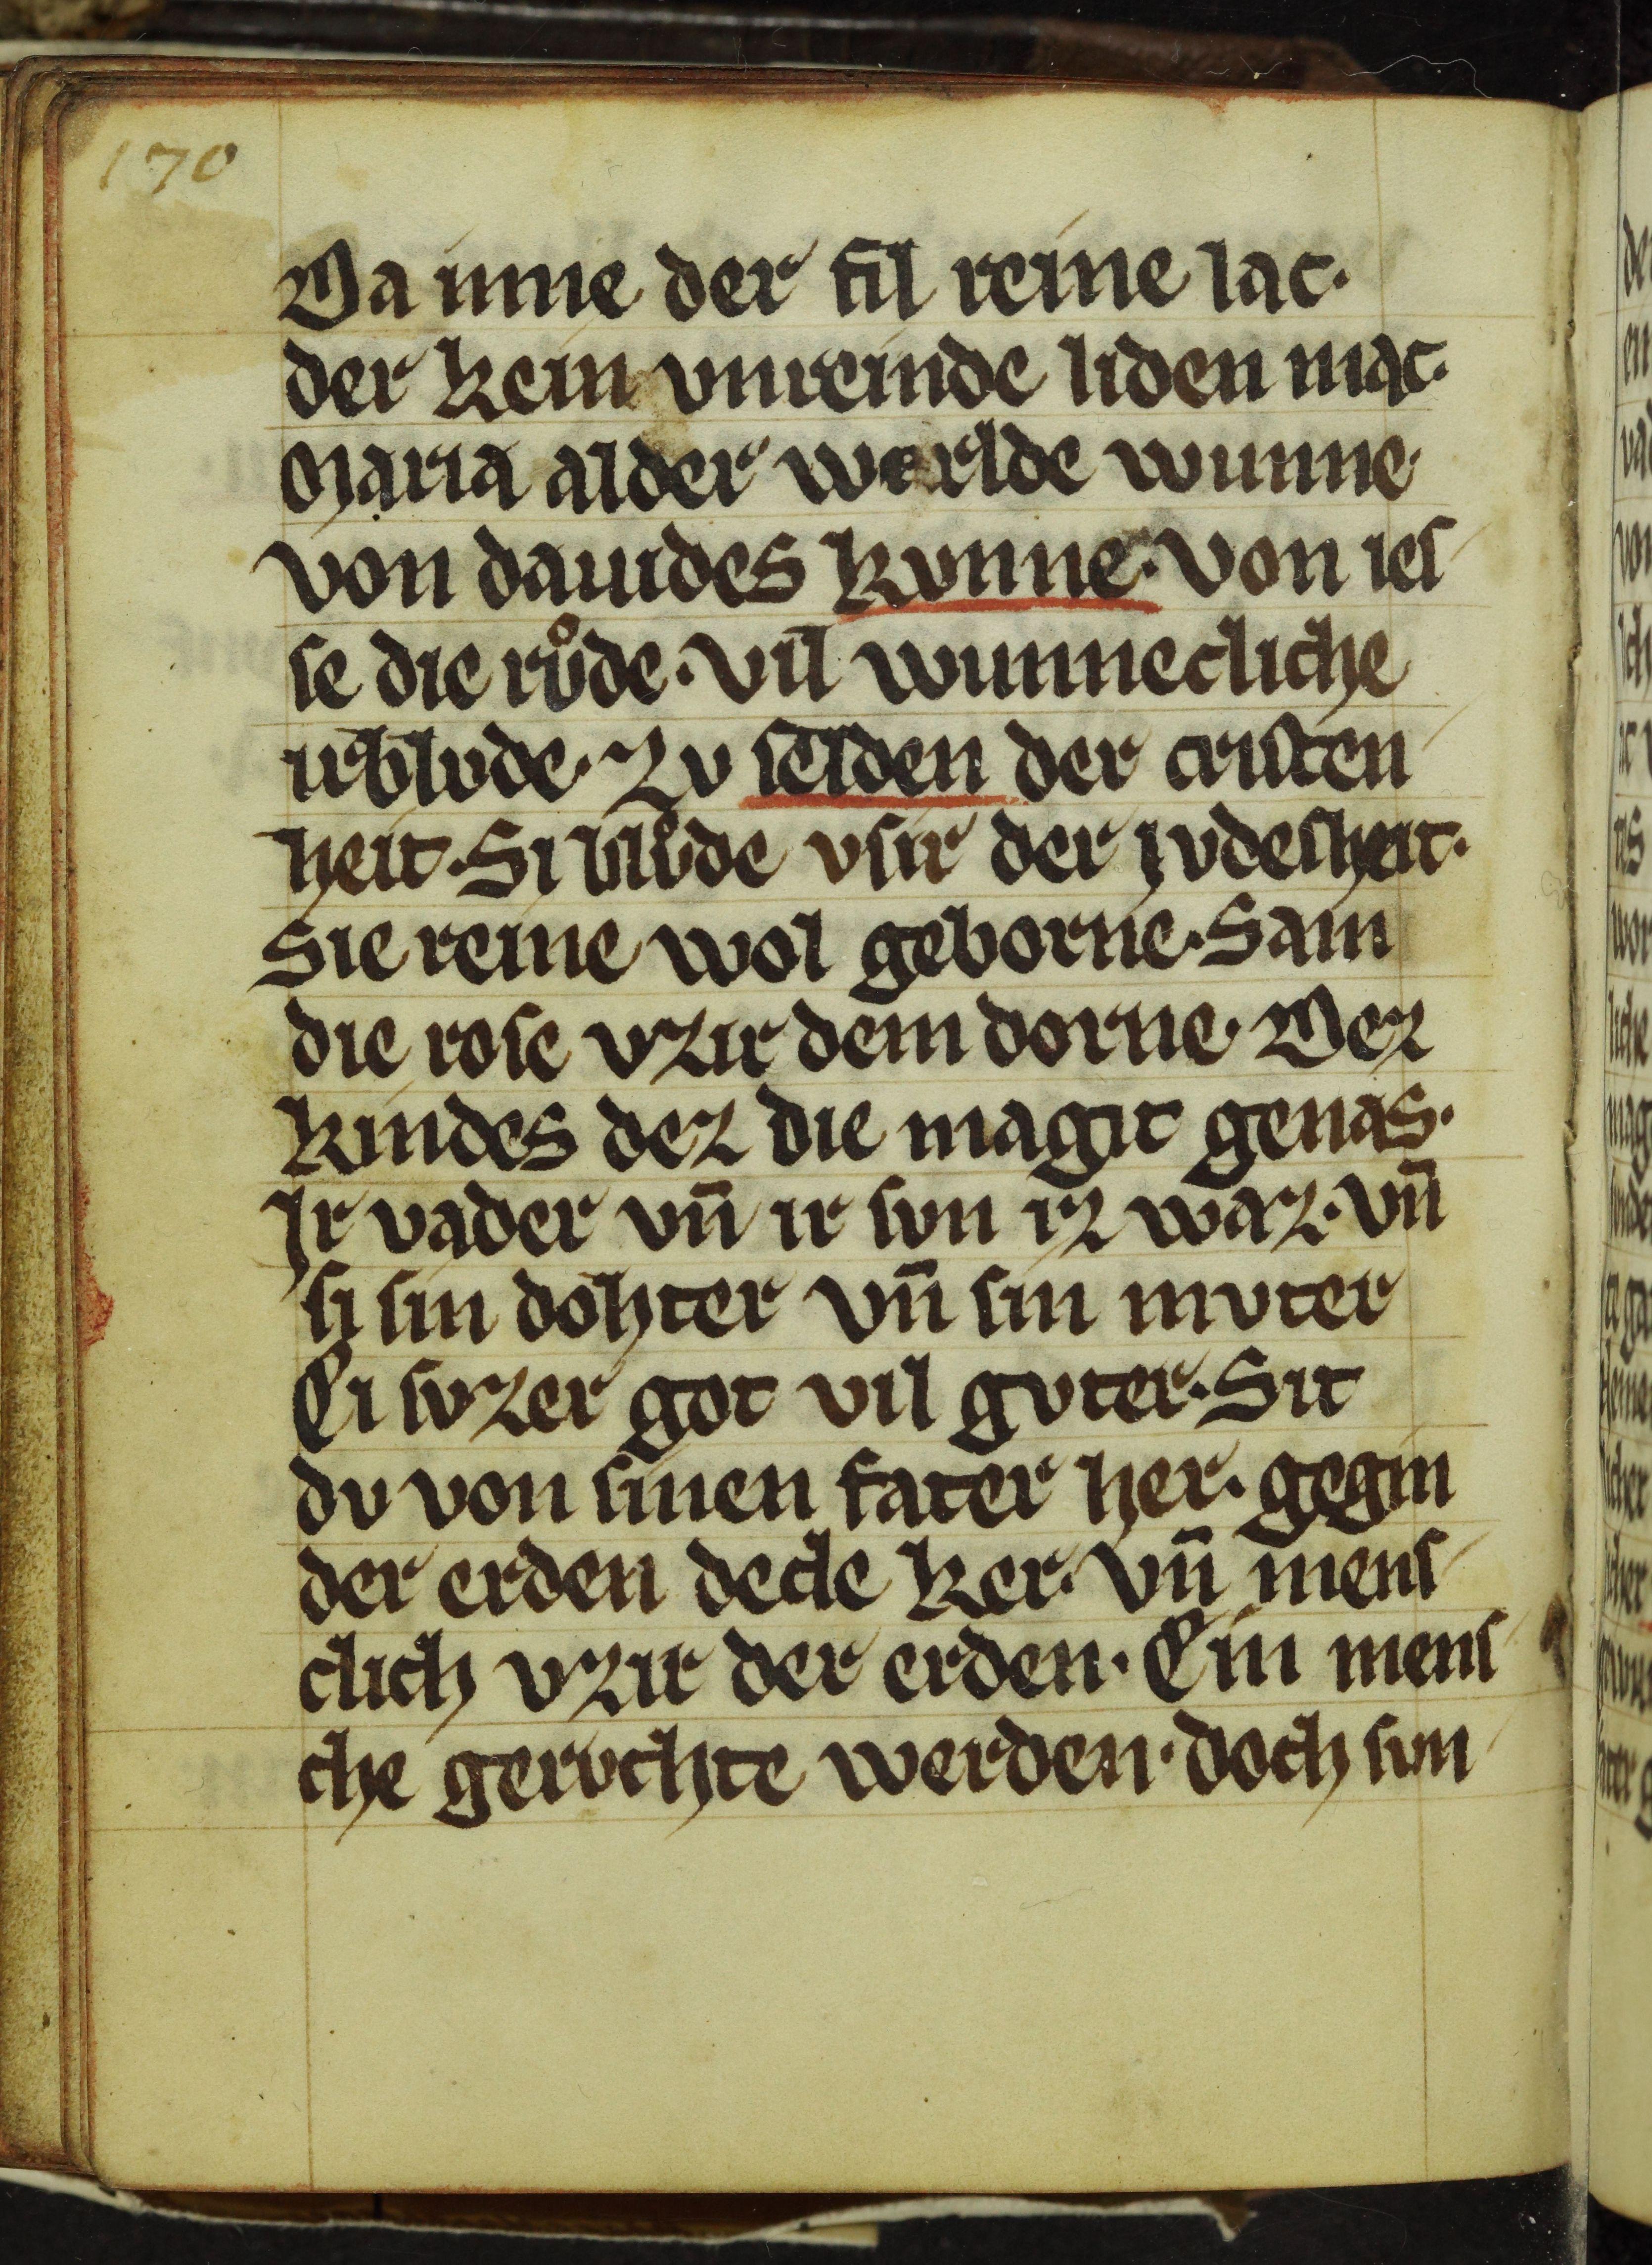 170
Da inne der fil reine lac.
der kein vnreinde liden mac.
Maria alder werlde wunne.
von dauides kvnne. von ieſ
ſe die rv̊de. vil wunnecliche
irblvde. Zv ſelden der criſten
heit. Si blv̊de vſir der jvdeſheit.
Sie reine wol geborne. Sam
die roſe vzir dem dorne. Dez
kindes dez die magit genas.
Jr vader vn̄ ir ſvn iz waz. vn̄
ſi ſin dohter vn̄ ſin mvter
Ei ſvzer got vil gvter. Sit
dv von ſinen fater her. gegin
der erden decke ker. vn̄ menſ
clich vzir der erden. Ein menſ
che gervchte werden. doch ſvn